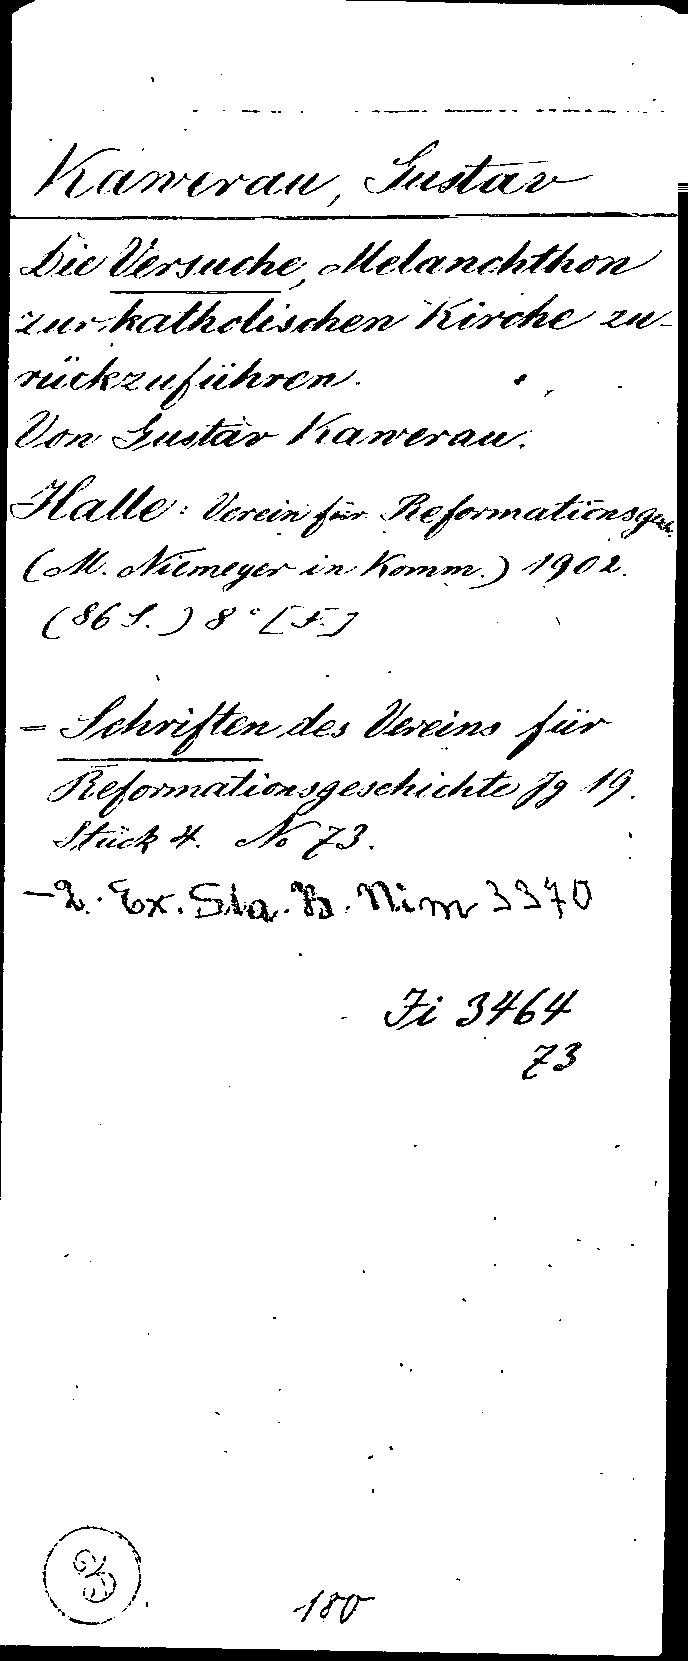 Kawerau, Gustav
Die Versuche, Melanchthon
zur katholischen Kirche zu-
rückzuführen.
Von Gustav Kawerau.
Halle: Verein für Reformationsgesch.
(M. Niemeyer in Komm.) 1902.
(86 S.) 8° [F.]
= Schriften des Vereins für
Reformationsgeschichte Jg 19.
Stück 4. No 73.
- 2. Ex. Sta. B. Nim 3370
Fi 3464
73
B
180